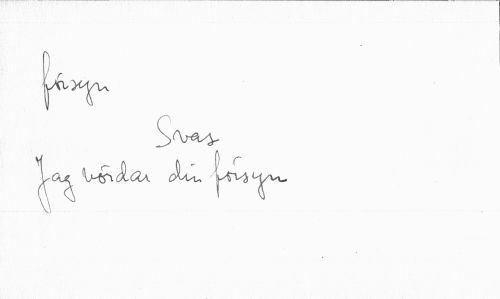 försyn
Svas
Jag vördar din försyn